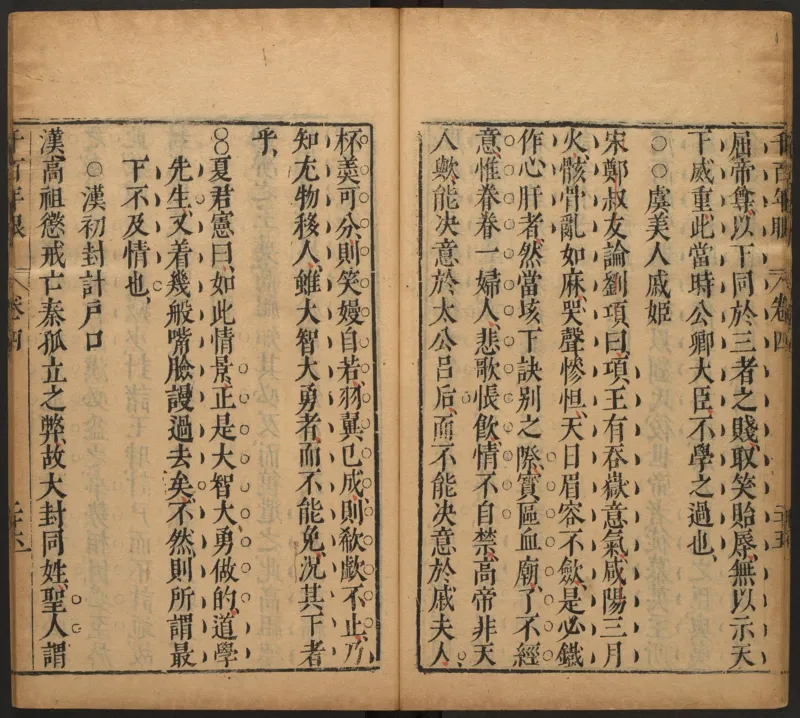 千百年眼 卷四 二十五
屈帝尊以下同於三者之賤取笑貽辱無以示天
下威重此當時公卿大臣不學之過也
○○虞美人戚姬
宋鄭叔友論劉項曰項王有吞嶽意氣咸陽三月
火骸骨亂如麻哭聲慘怛天日眉容不斂是必鐵
作心肝者然當垓下訣別之際寶區血廟了不經
意惟眷眷一婦人悲歌悵飲情不自禁高帝非天
人歟能决意於太公呂后而不能决意於戚夫人
杯羹可分則笑嫚自若羽翼已成則欷歔不止乃
知尤物移人雖大智大勇者而不能免況其下者
乎
○○夏君憲曰如此情景正是大智大勇做的道學
先生又着幾般嘴臉謾過去矣不然則所謂最
下不及情也
○漢初封計戶口
漢高祖懲戒亡秦孤立之弊故大封同姓聖人謂
千百年眼 卷四